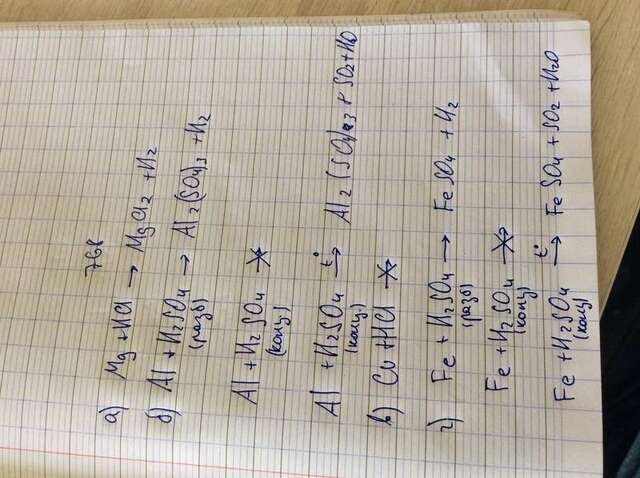 768
а) Mg + HCl → MgCl2 + H2
б) Al + H2SO4 → Al2(SO4)3 + H2
(разб)
Al + H2SO4 ↛
(конц.)
Al + H2SO4 t°→ Al2(SO4)3 + SO2 + H2O
(конц.)
в) Cu + HCl ↛
г) Fe + H2SO4 → FeSO4 + H2
(разб)
Fe + H2SO4 ↛
(конц)
Fe + H2SO4 t°→ FeSO4 + SO2 + H2O
(конц)